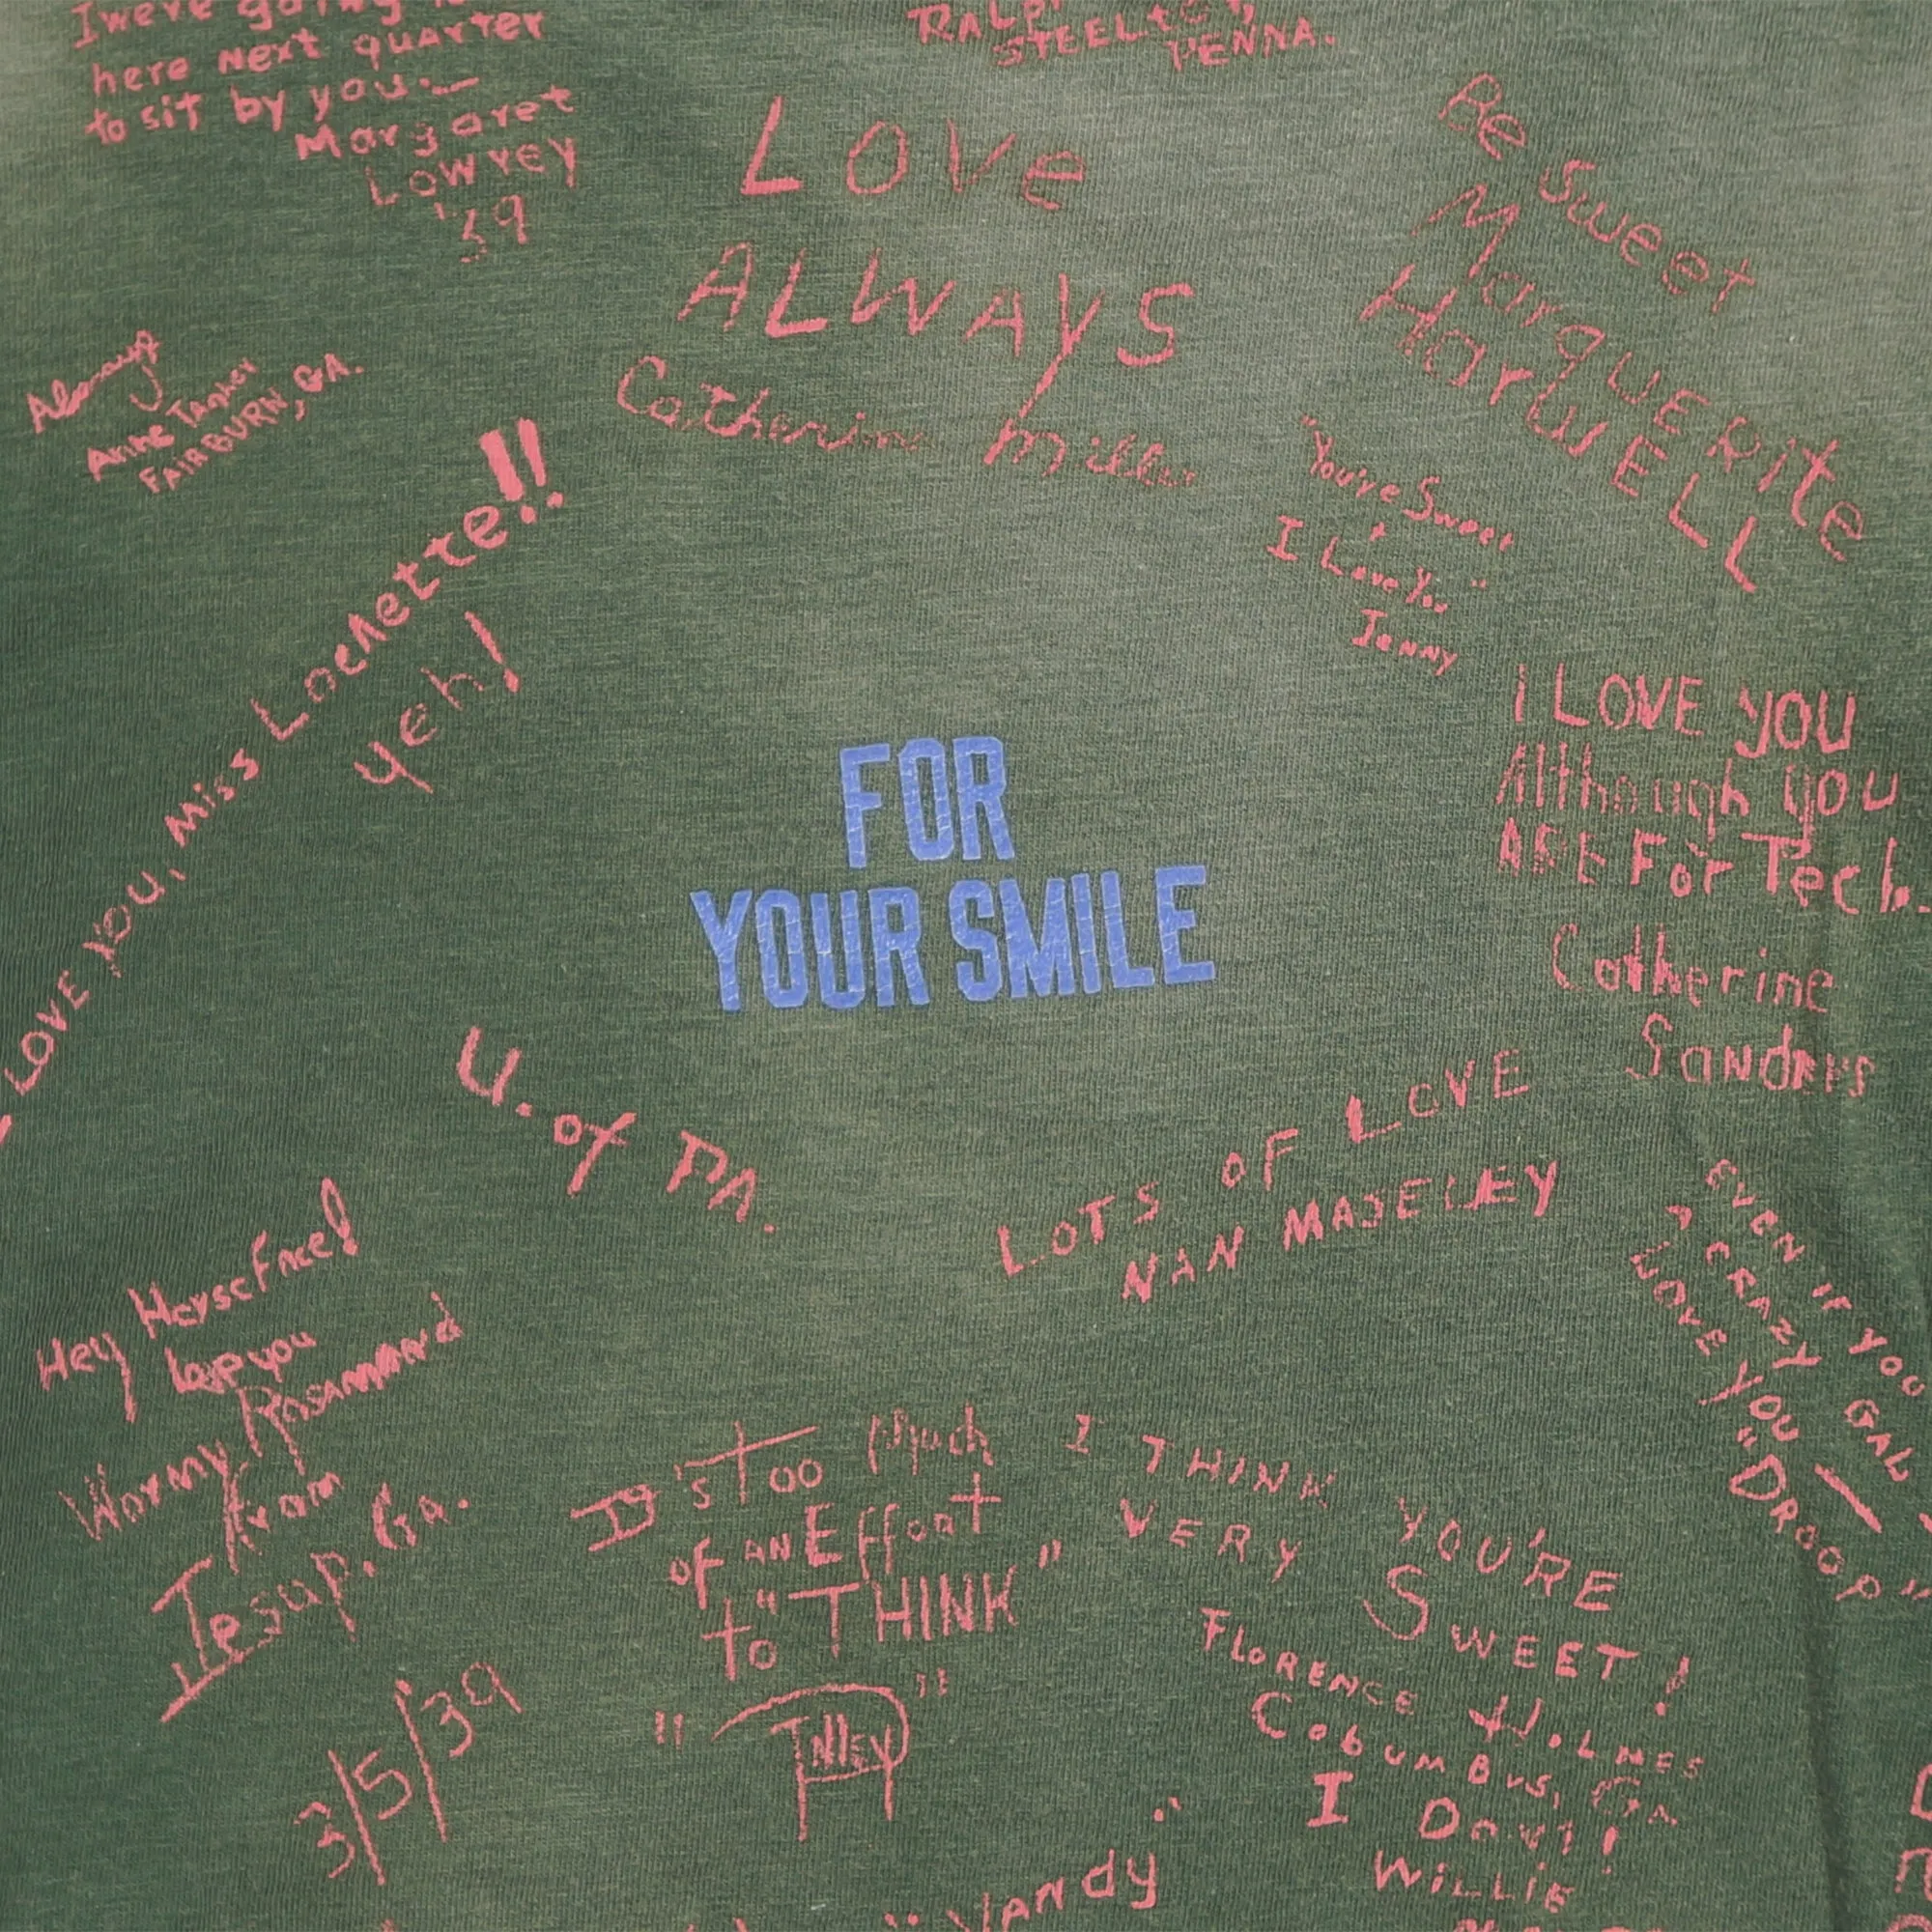 I were going to
here next quarter
to sit by you.—
Margaret
Lowrey
'39
STEELTON,
PENNA.
LOVE
ALWAYS
Catherine Miller
Be Sweet
Marguerite
HarwELL
Always
Anne Tanner
FAIRBURN, GA.
LOVE you, Miss Lochette!!
yeh!
"You're Sweet
+
I Love You"
Jenny
I LOVE YOU
Although you
ARE For Tech.
Catherine
Sanders
FOR
YOUR SMILE
U. of PA.
LOTS OF LOVE
NAN
EVEN IF YOU
A CRAZY GAL
LOVE YOU—
"DROOP"
Hey Horseface!
love you
Wormy Rosamond
from
Jesup, Ga.
3/5/39
It's Too Much
OF AN Effort
to "THINK"
"Tilley"
I THINK YOU'RE
VERY SWEET!
FLORENCE HOLMES
COLUMBUS, GA
I Don't!
WILLIE
"Vandy"